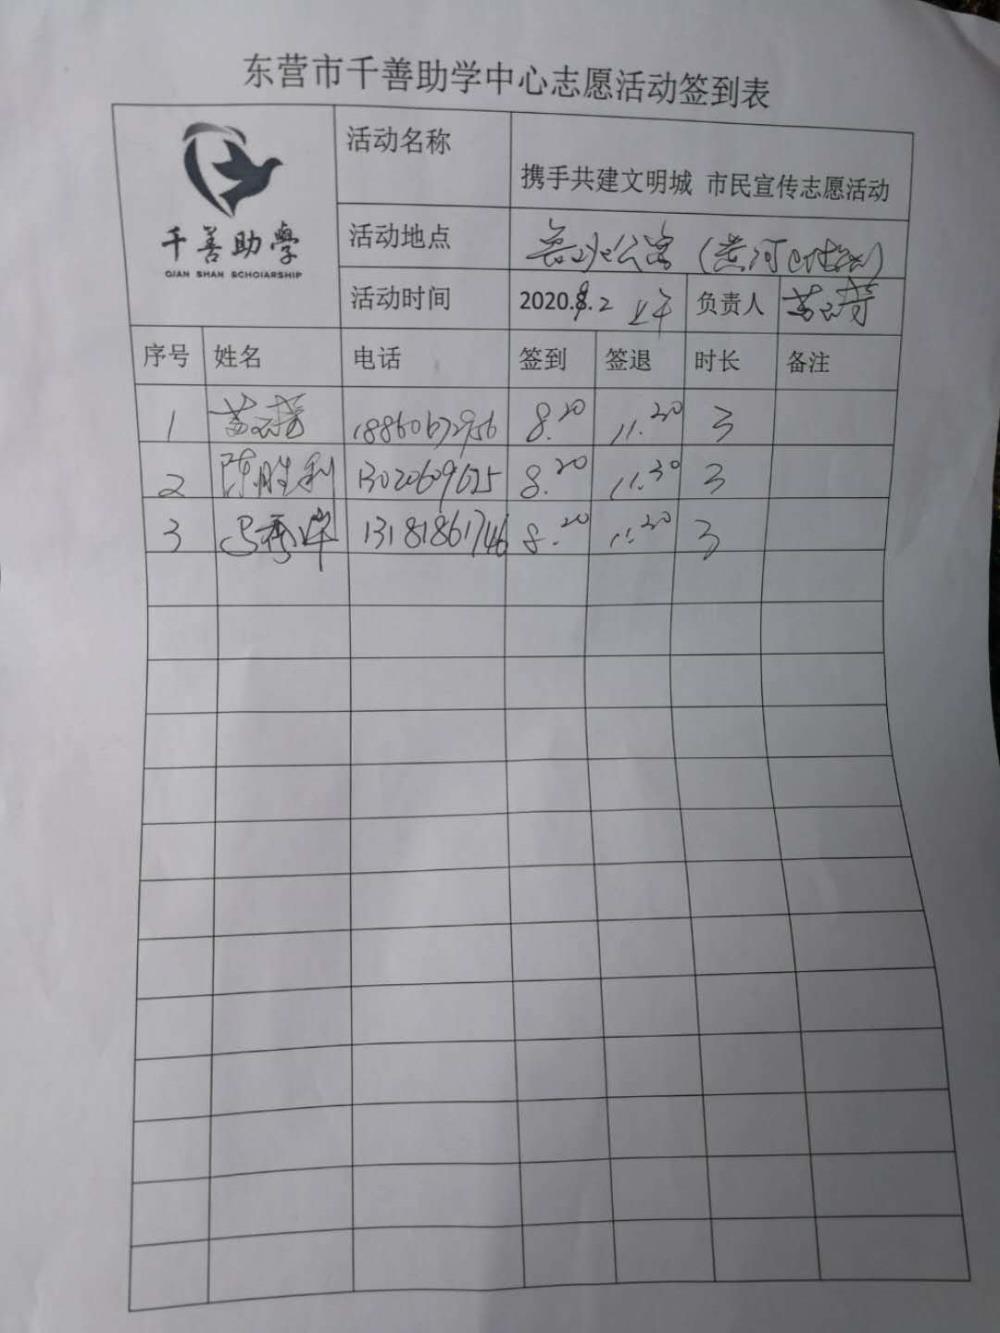 东营市千善助学中心志愿活动签到表
千善助學
QIAN SHAN SCHOLARSHIP
活动名称
携手共建文明城 市民宣传志愿活动
活动地点
鲁班公寓 (黄河
活动时间 2020.8.2 上午 负责人
序号 姓名 电话 签到 签退 时长 备注
1 18860672956 8.20 11.20 3
2 陈胜利 13020609625 8.20 11.30 3
3 13181861746 8.20 11.20 3